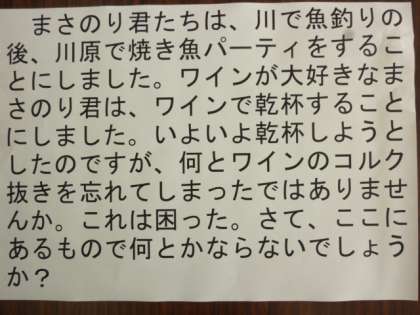 まさのり君たちは、川で魚釣りの
後、川原で焼き魚パーティをするこ
とにしました。ワインが大好きなま
さのり君は、ワインで乾杯すること
にしました。いよいよ乾杯しようと
したのですが、何とワインのコルク
抜きを忘れてしまったではありませ
んか。これは困った。さて、ここに
あるもので何とかならないでしょう
か？